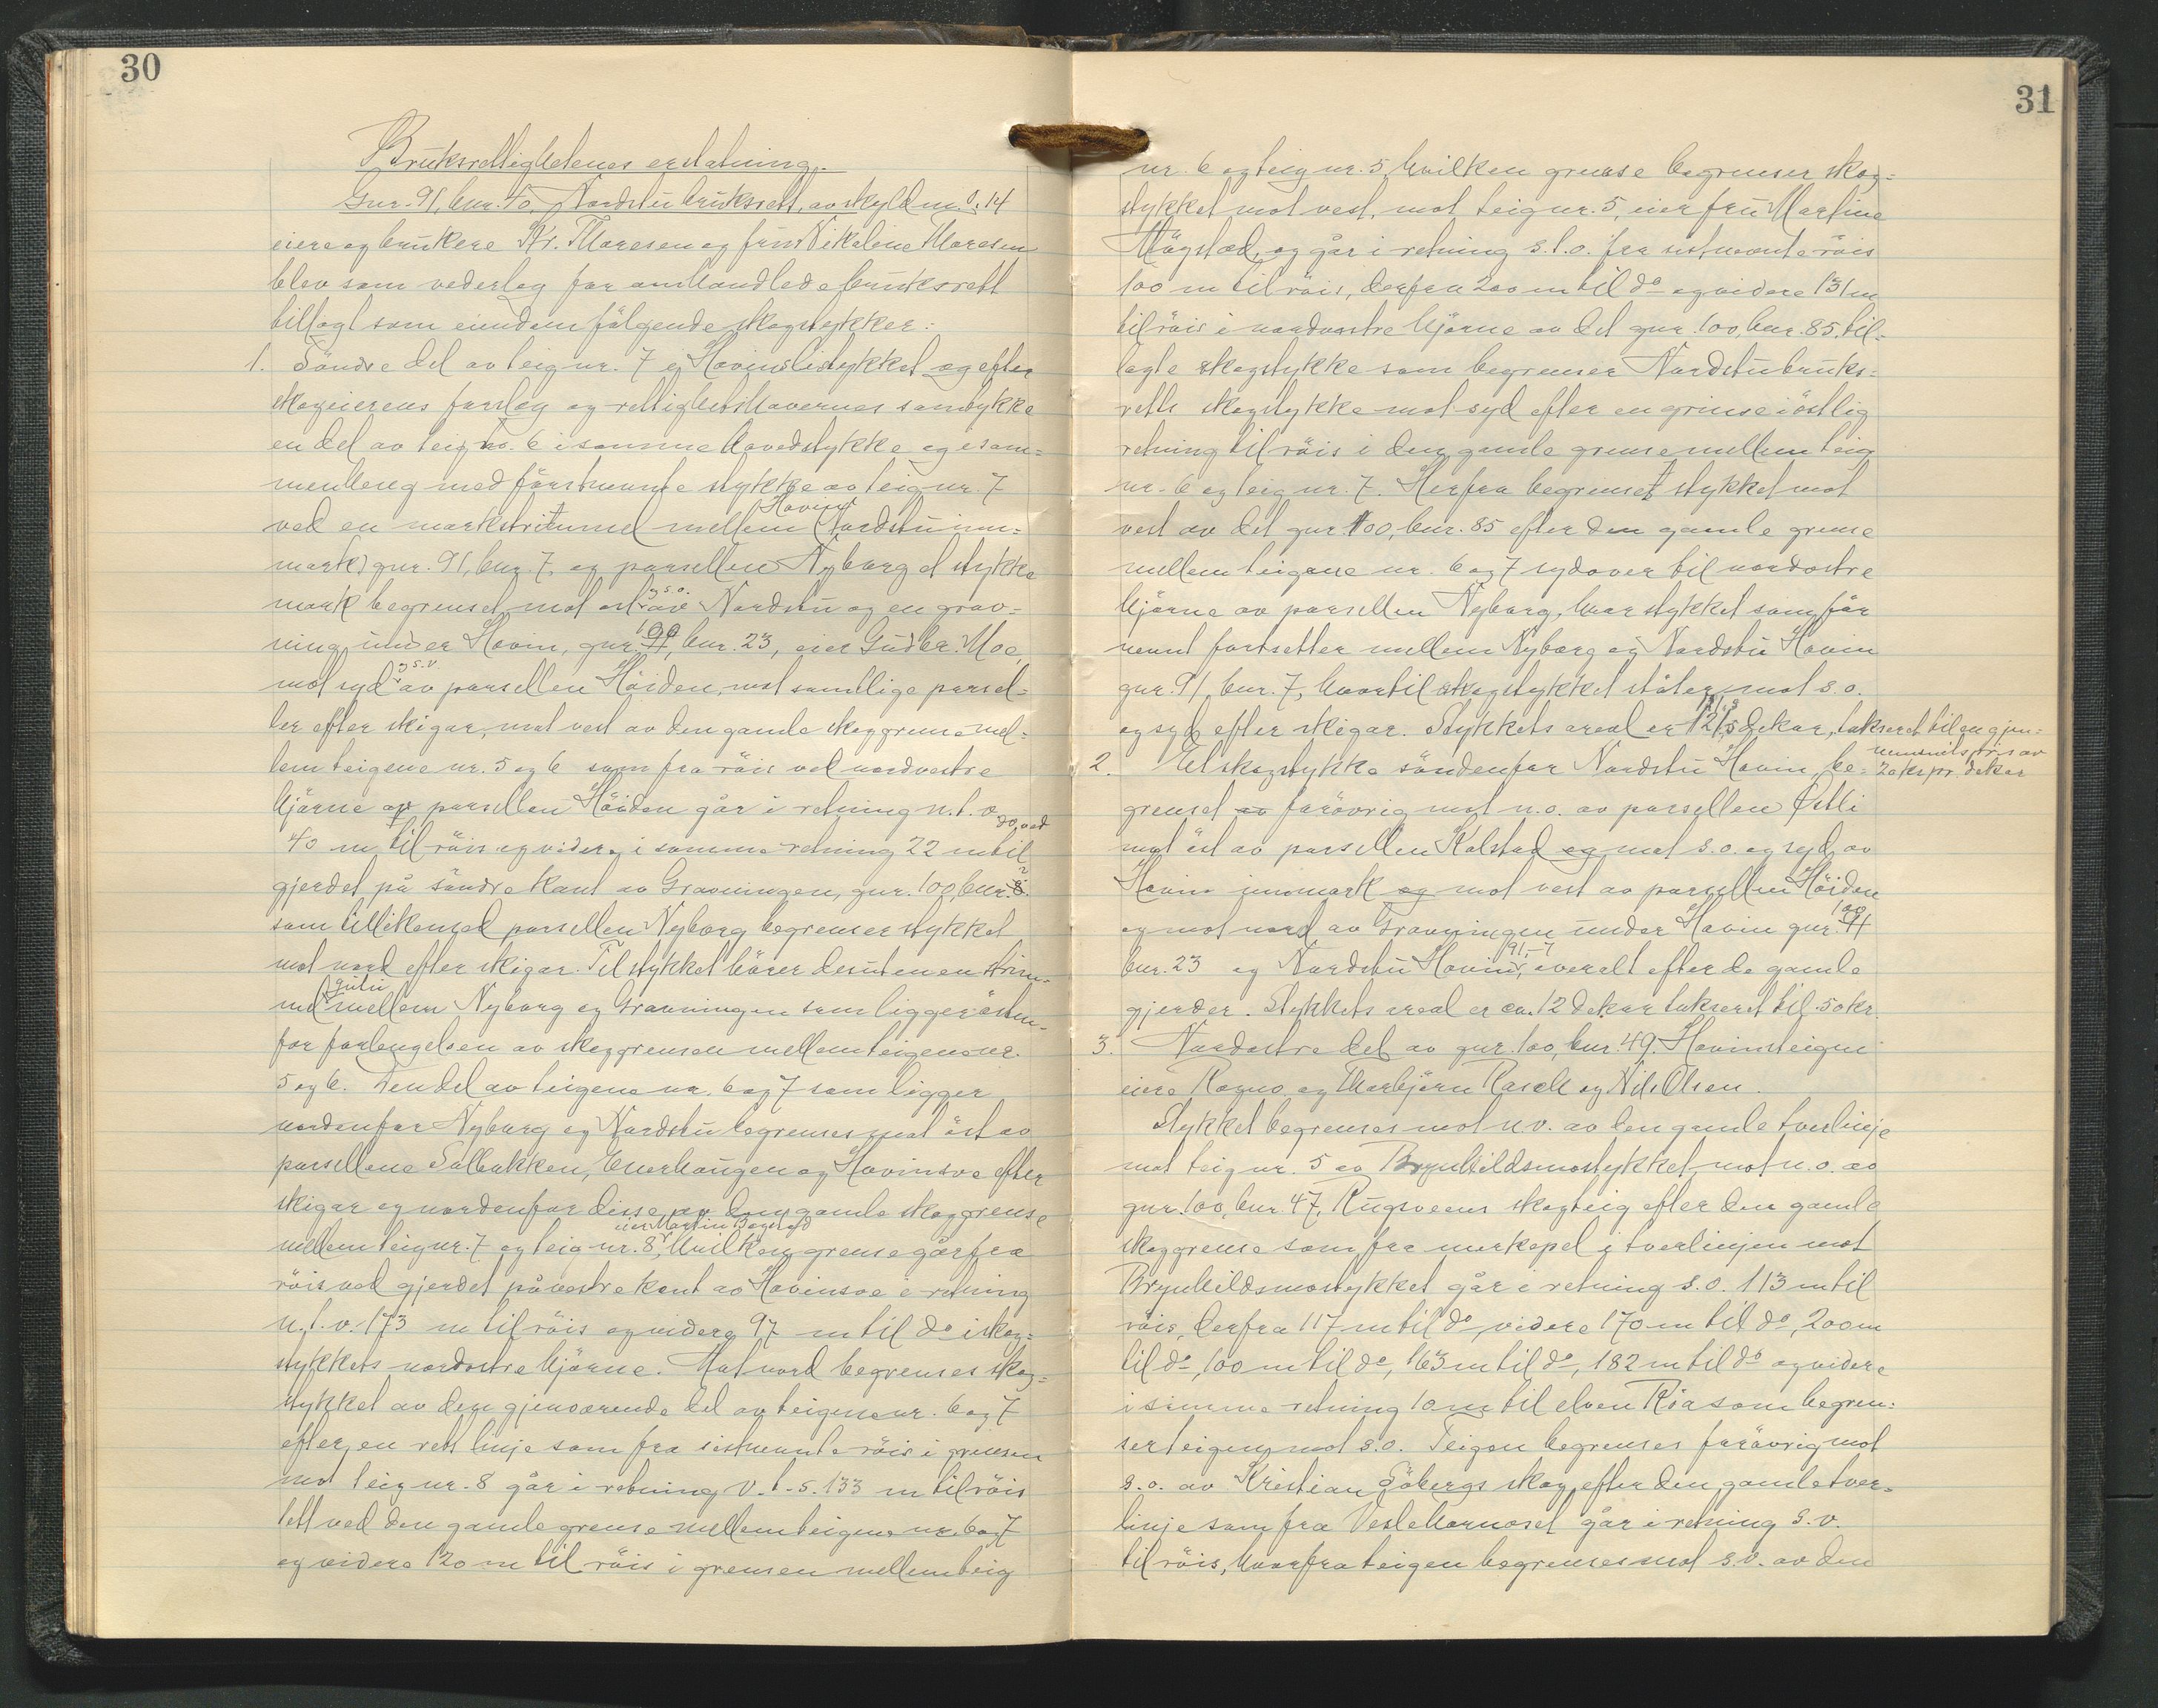 30
Bruksrettighetenes erstatning.
Gnr. 91, bnr. 40, Nordstu bruksrett, av skyld m. 0.14
eiere og brukere Kr. Thoresen og fru Nikoline Thoresen
blev som vederlag for omhandlede bruksrett
tillagt som eiendom følgende skogstykker:
1. Søndre del av teig nr. 7 i Hovinslistykket og efter
skogeierens forslag og rettighetshavernes samtykke
en del av teig nr. 6 i samme hovedstykke og i sam=
menheng med førstnevnte stykke av teig nr. 7
ved en markstrimmel mellem Nordstu Hovins inn=
mark, gnr. 91, bnr. 7, og parsellen Nyborg et stykke
mark begrenset mot ost og s.o. av Nordstu og en grav=
ning under Hovin, gnr. 100, bnr. 23, eier Gudbr. Moe,
mot syd og s.v. av parsellen Höiden, mot samtlige parsel=
ler efter skigar, mot vest av den gamle skoggrense mel=
lem teigene nr. 5 og 6 som fra röis ved nordvestre
hjörne av parsellen Höiden går i retning n.t.o.
40 m til röis og videre i samme retning 22 m til do ved
gjerdet på söndre kant av Gravningen, gnr. 100, bnr. 23
som tillikemed parsellen Nyborg begrenser stykket
mot nord efter skigar. Til stykket hörer desuten en strim=
mel mellem Nyborg og Gravningen som ligger östen=
for forlengelsen av skoggrensen mellem teigene nr.
5 og 6. Den del av teigene nr. 6 og 7 som ligger
nordenfor Nyborg og Nordstu begrenses mot öst av
parsellene Solbakken, Enerhaugen og Hovinsve efter
skigar og nordenfor disse av den gamle skoggrense
mellem teig nr. 7 og teig nr. 8, eier Martin hvilken grense går fra
röis ved gjerdet på vestre kant av Hovinsve i retning
n.t.v. 173 m til röis og videre 97 m til do i skog=
stykkets nordostre hjörne. Mot nord begrenses skog=
stykket av den gjenværende del av teigene nr. 6 og 7
efter en rett linje som fra sistnevnte röis i grensen
mot teig nr. 8 går i retning v.t.s. 133 m til röis
tett ved den gamle grense mellem teigene nr. 6 og 7
og videre 120 m til röis i grensen mellem teig
31
nr. 6 og teig nr. 5, hvilken grense begrenser skog=
stykket mot vest, mot teig nr. 5, eier fru Martine
Mögstad, og går i retning s.t.o. fra sistnevnte röis
100 m til röis, derfra 200 m til do og videre 131 m
til röis i nordvestre hjörne av det gnr. 100, bnr. 85 til=
lagte skogstykke som begrenser Nordstu bruks=
retts skogstykke mot syd efter en grense i östlig
retning til röis i den gamle grense mellem teig
nr. 6 og teig nr. 7. Herfra begrenset stykket mot
vest av det gnr. 100, bnr. 85 efter den gamle grense
mellem teigene nr. 6 og 7 sydover til nordostre
hjörne av parsellen Nyborg, hvor stykket som før
nevnt fortsetter mellem Nyborg og Nordstu Hovin
gnr. 91, bnr. 7, hvortil skogstykket stöter mot s.o.
og syd efter skigar. Stykkets areal er 121,3 dekar, taksert til en gjen=
nemsnitspris av
20 kr. pr. dekar
2. Et skogstykke söndenfor Nordstu Hovin, be=
grenset av forövrig mot n.o. av parsellen Østli
mot öst av parsellen Kalstad og mot s.o. og syd av
Hovin innmark og mot vest av parsellen Höiden
og mot nord av Gravningen under Hovin gnr. 100
bnr. 23 og Nordstu Hovin, 91,-7 overalt efter de gamle
gjerder. Stykkets areal er ca. 12 dekar taksert til 50 kr.
3. Nordostre del av gnr. 100, bnr. 49. Hovinsteigen
eiere Ragno og Thorbjörn Rasch og Nils Olsen.
Stykket begrenses mot n.v. av den gamle tverlinje
mot teig nr. 5 av Brynhildsmostykket, mot n.o. av
gnr. 100, bnr. 47, Rugsveens skogteig efter den gamle
skoggrense som fra merkepel i tverlinjen mot
Brynhildsmostykket går i retning s.o. 113 m til
röis, derfra 117 m til do, videre 170 m til do, 200 m
til do, 100 m til do, 163 m til do, 182 m til do og videre
i samme retning 10 m til elven Röa som begren=
ser teigen mot s.o. Teigen begrenses forövrig mot
s.o. av Kristian Söbergs skog efter den gamle tver=
linje som fra går i retning s.v.
til röis, hvorfra teigen begrenses mot s.v. av den